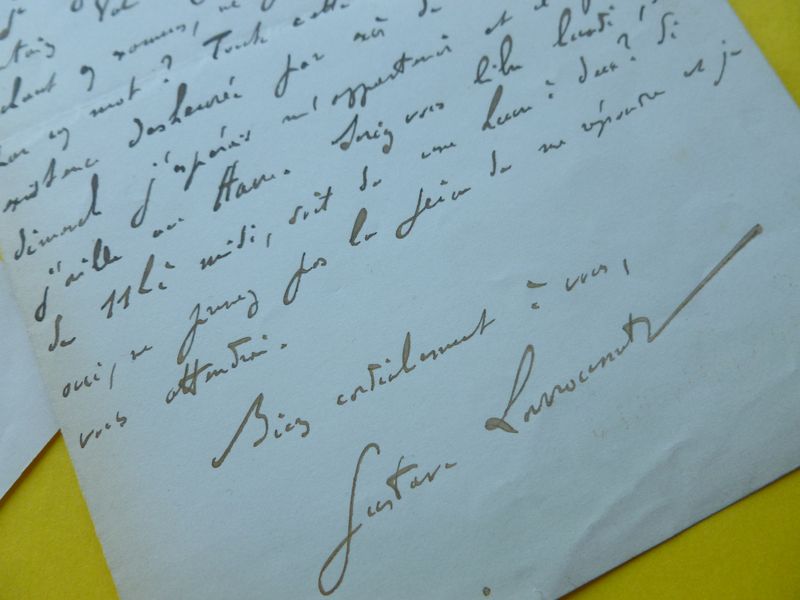 mot? Toute cette
existence désheurée par suite de
dimanch j'espérais m'appartenir et il
j'aille au Havre. Serez vous libre lundi,
de 11h à midi, soit de une heure à deux? Si
oui, ne prenez pas la peine de me répondre et je
vous attendrai.
Bien cordialement à vous,
Gustave Larroumet